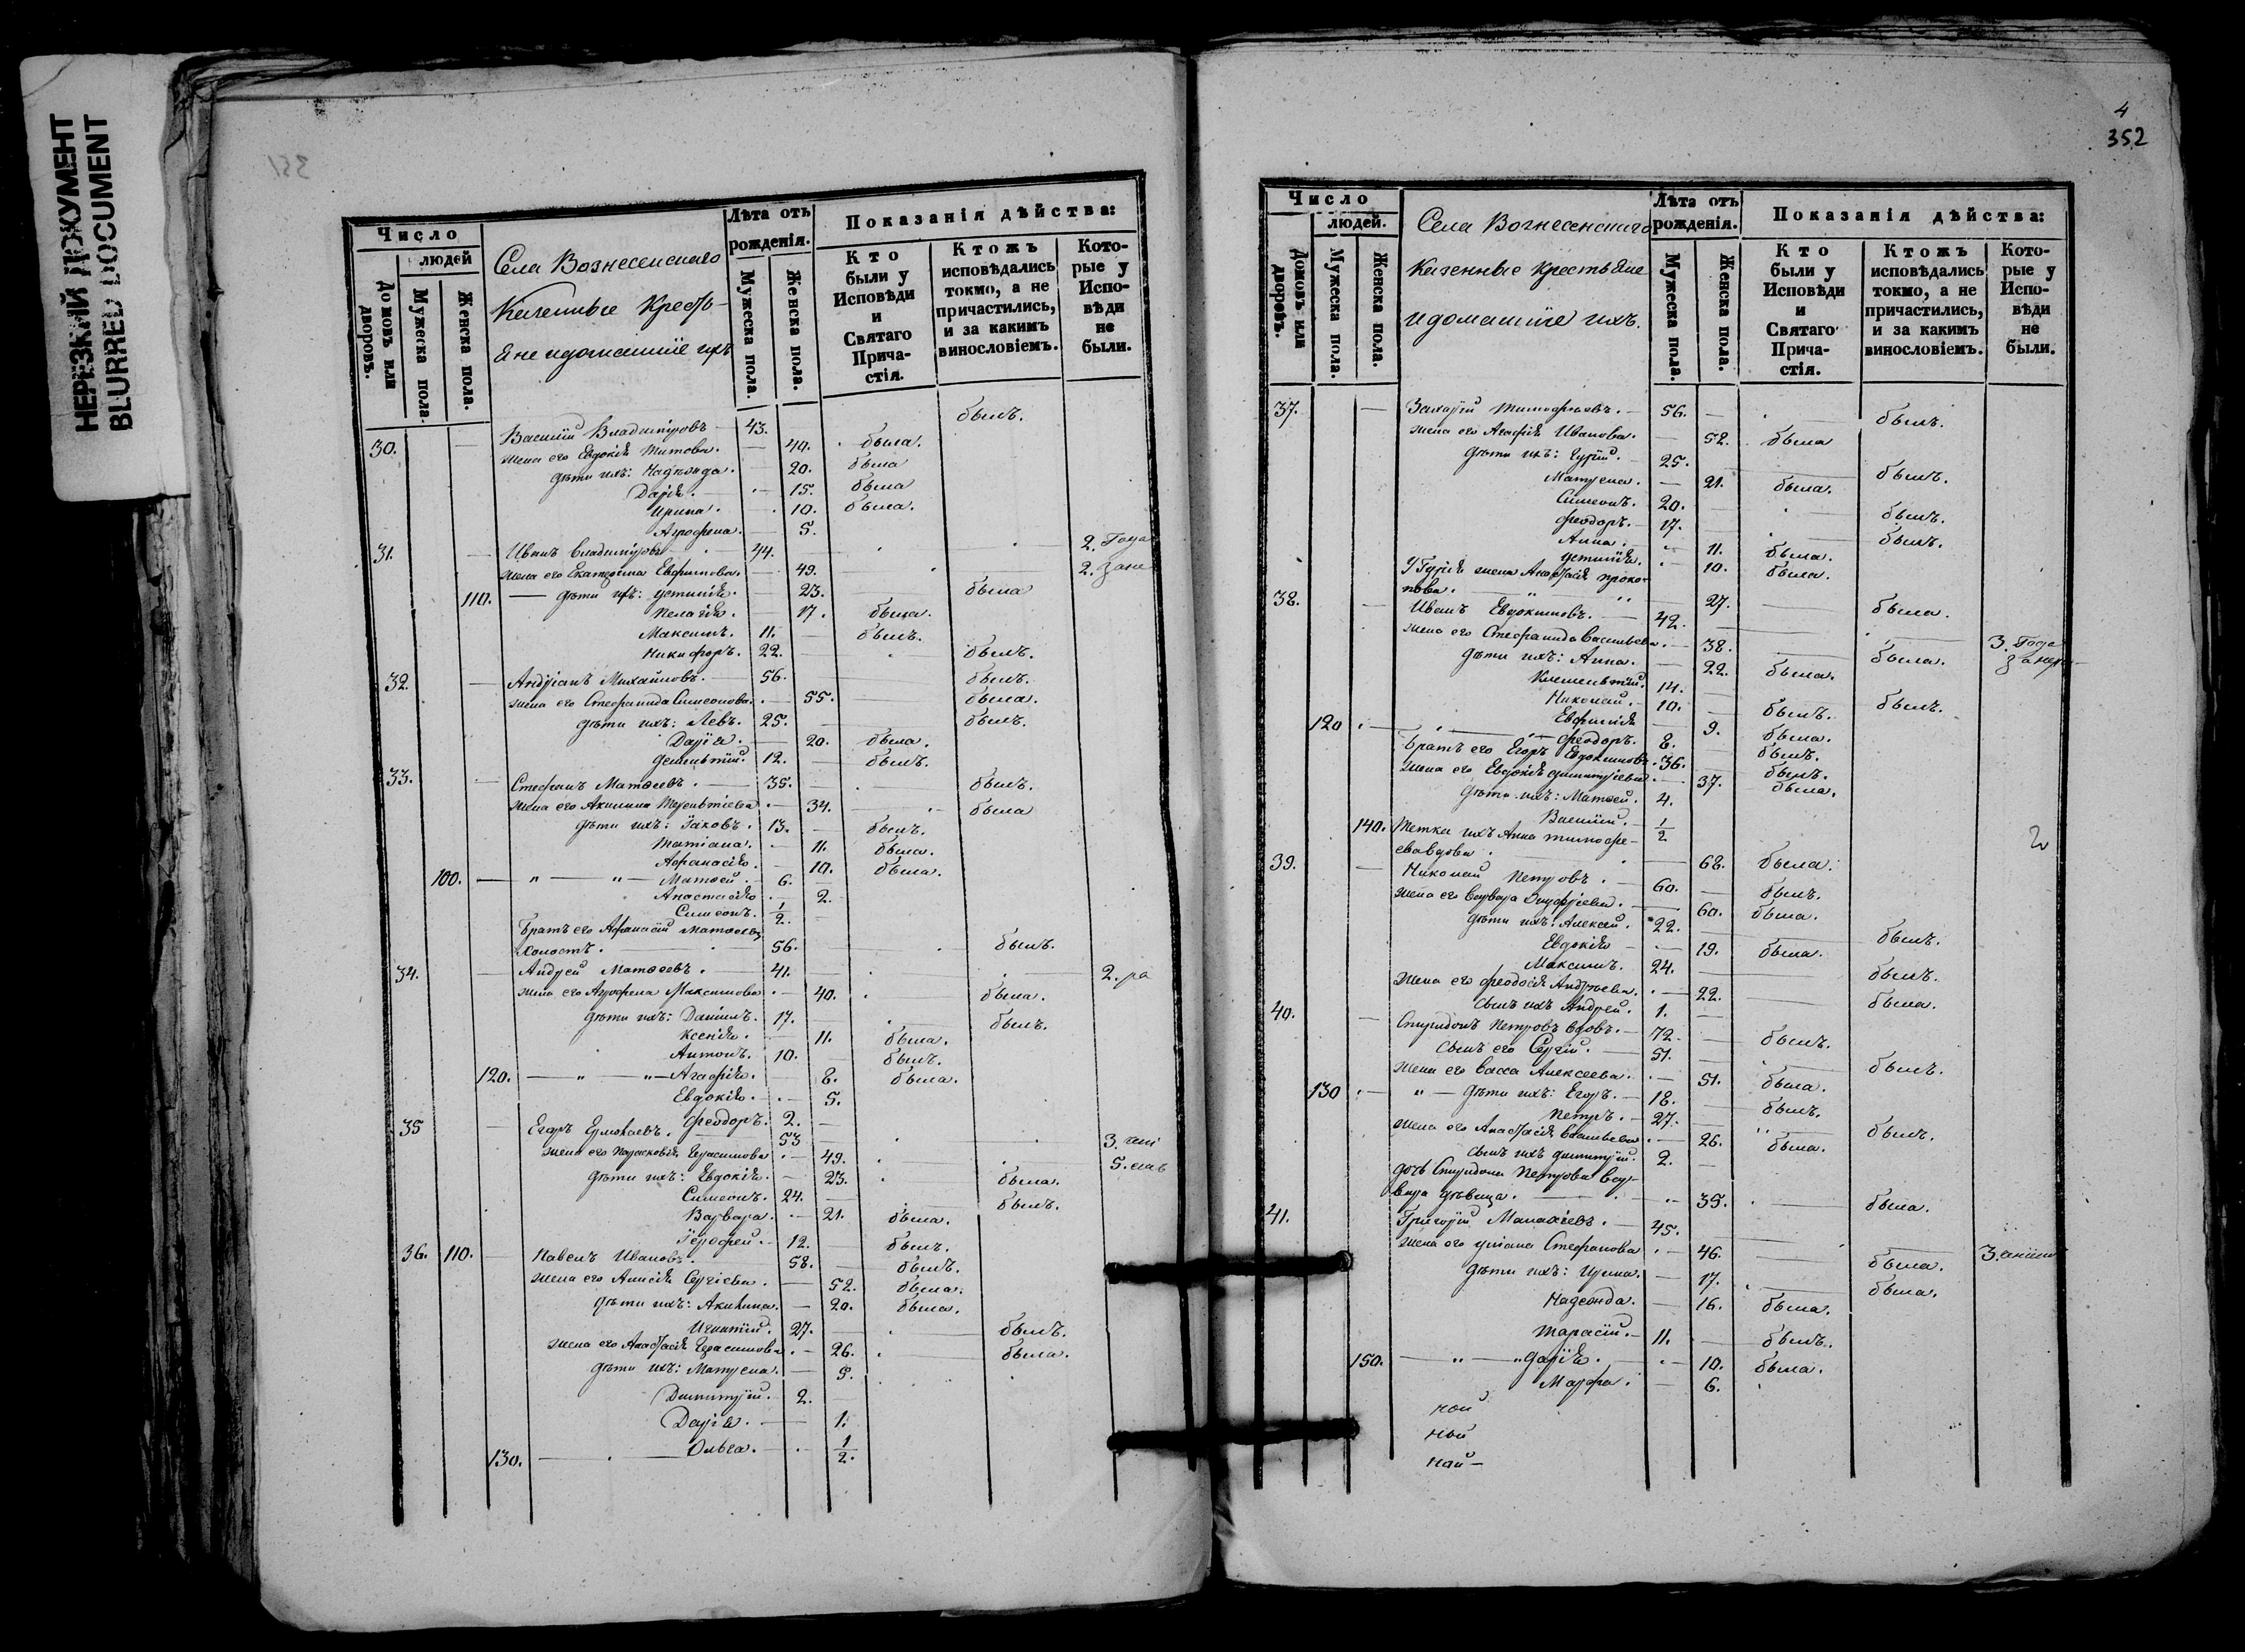 НЕРЕЗКИЙ ДОКУМЕНТ
BLURRED DOCUMENT
351
Число
людей
Домовъ или дворовъ.
Мужеска пола.
Женска пола.
Села Вознесенскаго
Казенные Кресть-
яне и домашніе ихъ
Лѣта отъ рожденія.
Мужеска пола.
Женска пола.
Показанія дѣйства:
Кто были у Исповѣди и Святаго Прича-стія.
Ктожъ исповѣдались токмо, а не причастились, и за какимъ винословіемъ.
Кото-рые у Испо-вѣди не были.
30. — Василій Владиміровъ — 43. былъ.
жена его Евдокія Титова. — 40. была.
дѣти ихъ: Надежда. 20. была
Дарія. — 15. была
Ирина. 10. была.
Агрофена. 5.
31. — Иванъ Владиміровъ 44. 2. Года
жена его Екатерина Евфимова. 49. 2. зане
110. — дѣти ихъ: Устинія. — 23. была
Пелагія. — 17. была.
Максимъ. 11. — былъ.
Никифоръ. 22. — былъ.
32. — Андріанъ Михаиловъ. — 56. былъ.
жена его Стефанида Симеонова. — 55. была.
дѣти ихъ: Левъ. 25. — былъ.
Дарія. — 20. была.
Дементій. 12. — былъ.
33. — Стефанъ Матѳеевъ. — 35. былъ.
жена его Акилина Терентіева — 34. была
дѣти ихъ: Іаковъ. 13. — былъ.
Татіана. — 11. была.
Афанасія. — 10. была.
100. — " — " — Матѳей. — 6.
Анастасія — 2.
Симеонъ. 1/2. —
Братъ его Афанасій Матѳеевъ
холостъ. 56. — былъ.
34. — Андрей Матѳеевъ. — 41. 2. ра
жена его Агрофена Максимова — 40. была.
дѣти ихъ: Даніилъ. 17. — былъ.
Ксенія. — 11. была.
Антонъ. 10. — былъ.
120. — " — " — Агафія. 8. была.
Евдокія. — 5.
Феодоръ. 2. —
35 — Егоръ Ермолаевъ. 53 3.
жена его Парасковія Герасимова — 49. 5.
дѣти ихъ: Евдокія. — 23. была.
Симеонъ. 24. — былъ.
Варвара. — 21. была.
Іерофей. — 12. былъ.
36. 110. — Павелъ Ивановъ. 58. — былъ.
жена его Анисія Сергіева. — 52. была.
дѣти ихъ: Акилина. — 20. была.
Игнатій. 27. — былъ.
жена его Анастасія Герасимова — 26. была.
дѣти ихъ: Матрена. — 5.
Димитрій. 2. —
Дарія. — 1.
130. — Ольга. — 1/2.
4
352
Число
людей.
Домовъ или дворовъ.
Мужеска пола.
Женска пола.
Села Вознесенскаго
Казенные Крестьяне
и домашніе ихъ.
Лѣта отъ рожденія.
Мужеска пола.
Женска пола.
Показанія дѣйства:
Кто были у Исповѣди и Святаго Прича-стія.
Ктожъ исповѣдались токмо, а не причастились, и за какимъ винословіемъ.
Кото-рые у Испо-вѣди не были.
37. — Захарій Тимофѣевъ. — 56. — былъ.
жена его Агафія Иванова. — 52. была
дѣти ихъ: Гурій. — 25. былъ.
Матрена. — 21. была.
Симеонъ. 20. — былъ.
Феодоръ. — 17. — былъ.
Анна. — 11. была.
Устинія. 10. была.
У Гурія жена Анастасія Проко-
пова. — 27. — была.
38. — Иванъ Евдокимовъ. — 42. 3. Года
жена его Стефанида Васильева. — 38. — была.
дѣти ихъ: Анна. — 22. была.
Клементій. 14. — былъ.
Николай. — 10. — былъ.
Евфимія — 9. была.
120 — Феодоръ. 8. — былъ.
Братъ его Егоръ Евдокимовъ. 36. — былъ.
жена его Евдокія Димитріева — 37. была.
дѣти ихъ: Матѳей. 4.
Василій. — 1/2
140. Тетка ихъ Анна Тимофе-
ева вдова. — 68. была.
39. — Николай Петровъ. — 60. — былъ.
жена его Варвара Онуфріева. — 60. была.
дѣти ихъ: Алексей. 22. — былъ.
Евдокія — 19. была.
Максимъ. 24. — былъ.
жена его Феодосія Андрѣева. — 22. — была.
сынъ ихъ Андрей. 1. —
40. — Спиридонъ Петровъ вдовъ. — 72. — былъ.
сынъ его Сергій. — 51. — былъ.
жена его Васса Алексеева. — 51. была.
130 — " — дѣти ихъ: Егоръ. — 18. — былъ.
Петръ. — 27. — былъ.
жена его Анастасія Васильева — 26. была.
сынъ ихъ Димитрій. 2. —
дочь Спиридона Петрова Вар-
вара дѣвица. — 35. — была.
41. — Григорій Малахіевъ. — 45. 3.
жена его Уліана Стефанова — 46. — была.
дѣти ихъ: Ирина. — 17. — была.
Надежда. — 16. была.
Тарасій. — 11. — былъ.
150. — " — " Дарія. — 10. была.
Марфа. — 6.
ной
ной
най —